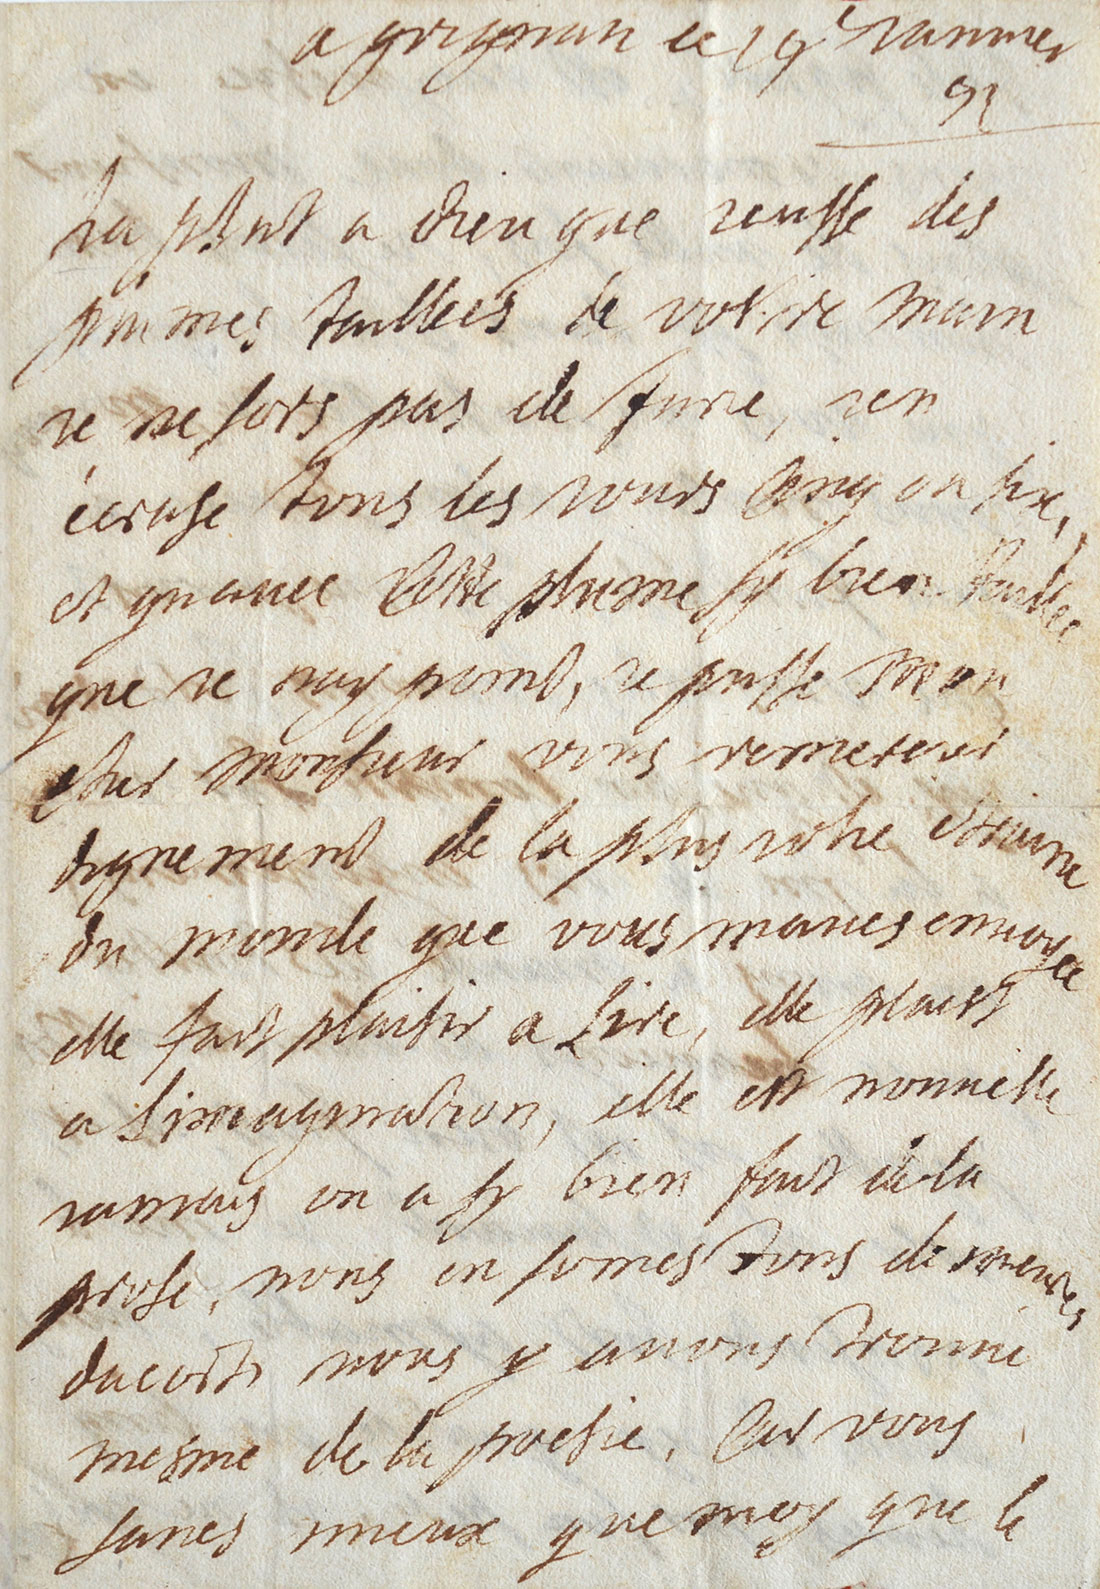 a grignan ce 19e Janvier
91
ha plut a dieu que jeusse des
plumes taillees de vostre main
je ne sors pas de furie, jen
ecrase tous les jours cinq ou six,
et quavec cette plume sy bien taillee
que je nay point, je pusse mon
cher monsieur vous remercier
dignement de la plus jolie
du monde que vous maves envoyee
elle fait plaisir a lire, elle plaist
a limagination, elle est nouvelle
jamais on a sy bien fait de la
prose, nous en somes tous demeures
dacort, nous y avons trouvé
mesme de la poesie, car vous
saves mieux que moy que le